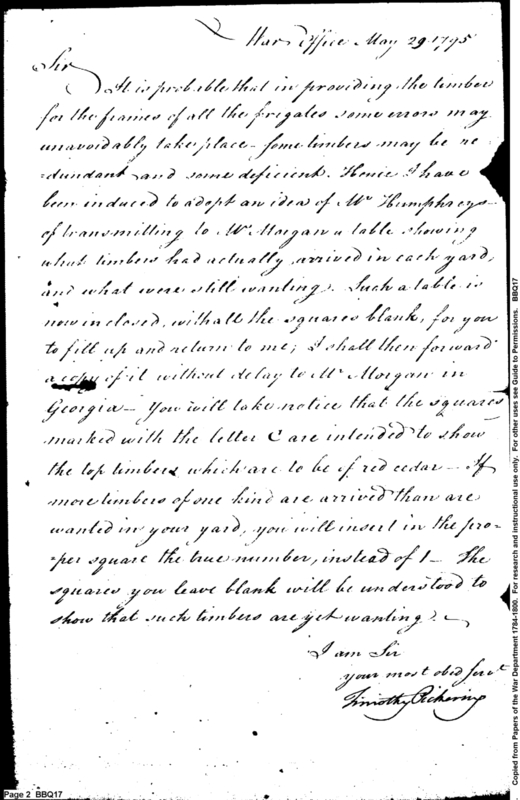 War Office May 29 1795
Sir
It is probable that in providing the timber
for the frames of all the frigates some errors may
unavoidably take place. Some timbers may be re-
=dundant and some deficient. Hence I have
been induced to adopt an idea of Mr Humphreys
of transmitting to Mr Morgan a table showing
what timbers had actually arrived in each yard,
and what were still wanting. Such a table is
now inclosed, with all the squares blank, for you
to fill up and return to me; I shall then forward
a copy of it without delay to Mr Morgan in
Georgia — You will take notice that the squares
marked with the letter C are intended to show
the top timbers which are to be of red cedar — If
more timbers of one kind are arrived than are
wanted in your yard, you will insert in the pro-
=per square the true number, instead of 1 — The
squares you leave blank will be understood to
show that such timbers are yet wanting. —
I am Sir
your most obed servt
Timothy Pickering
Page 2 BBQ17
Copied from Papers of the War Department 1784-1800. For research and instructional use only. For other uses see Guide to Permissions. BBQ17